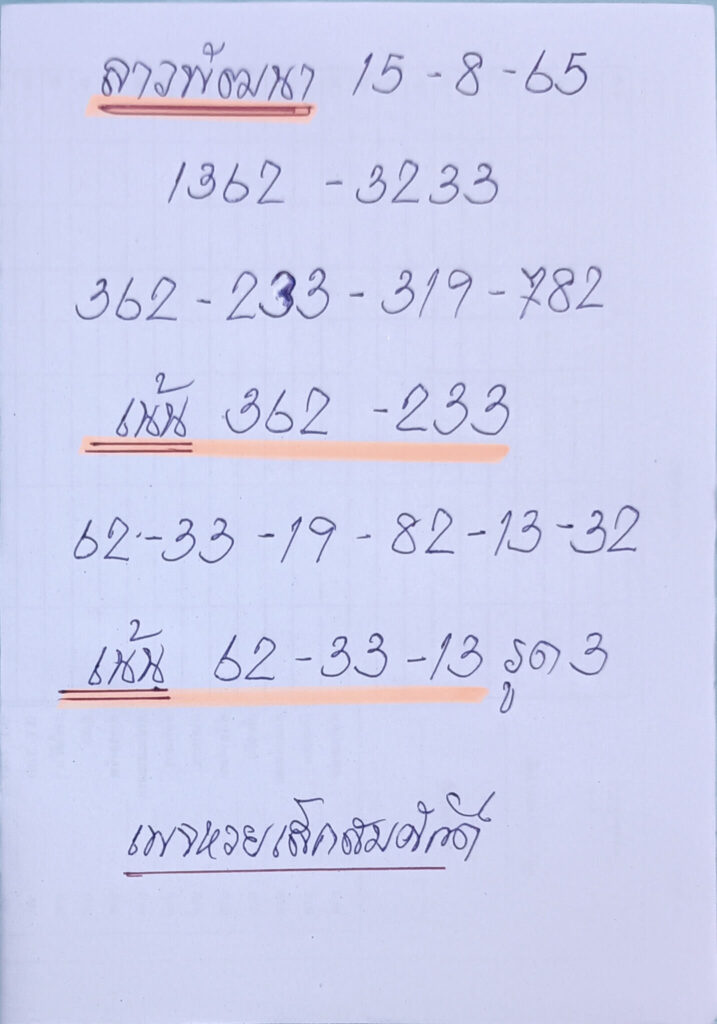 ลาวพัฒนา 15-8-65
1362 - 3233
362 - 233 - 319 - 782
เน้น 362 - 233
62 - 33 - 19 - 82 - 13 - 32
เน้น 62 - 33 - 13 รูด 3
เพจหวยเล็กสมศักดิ์